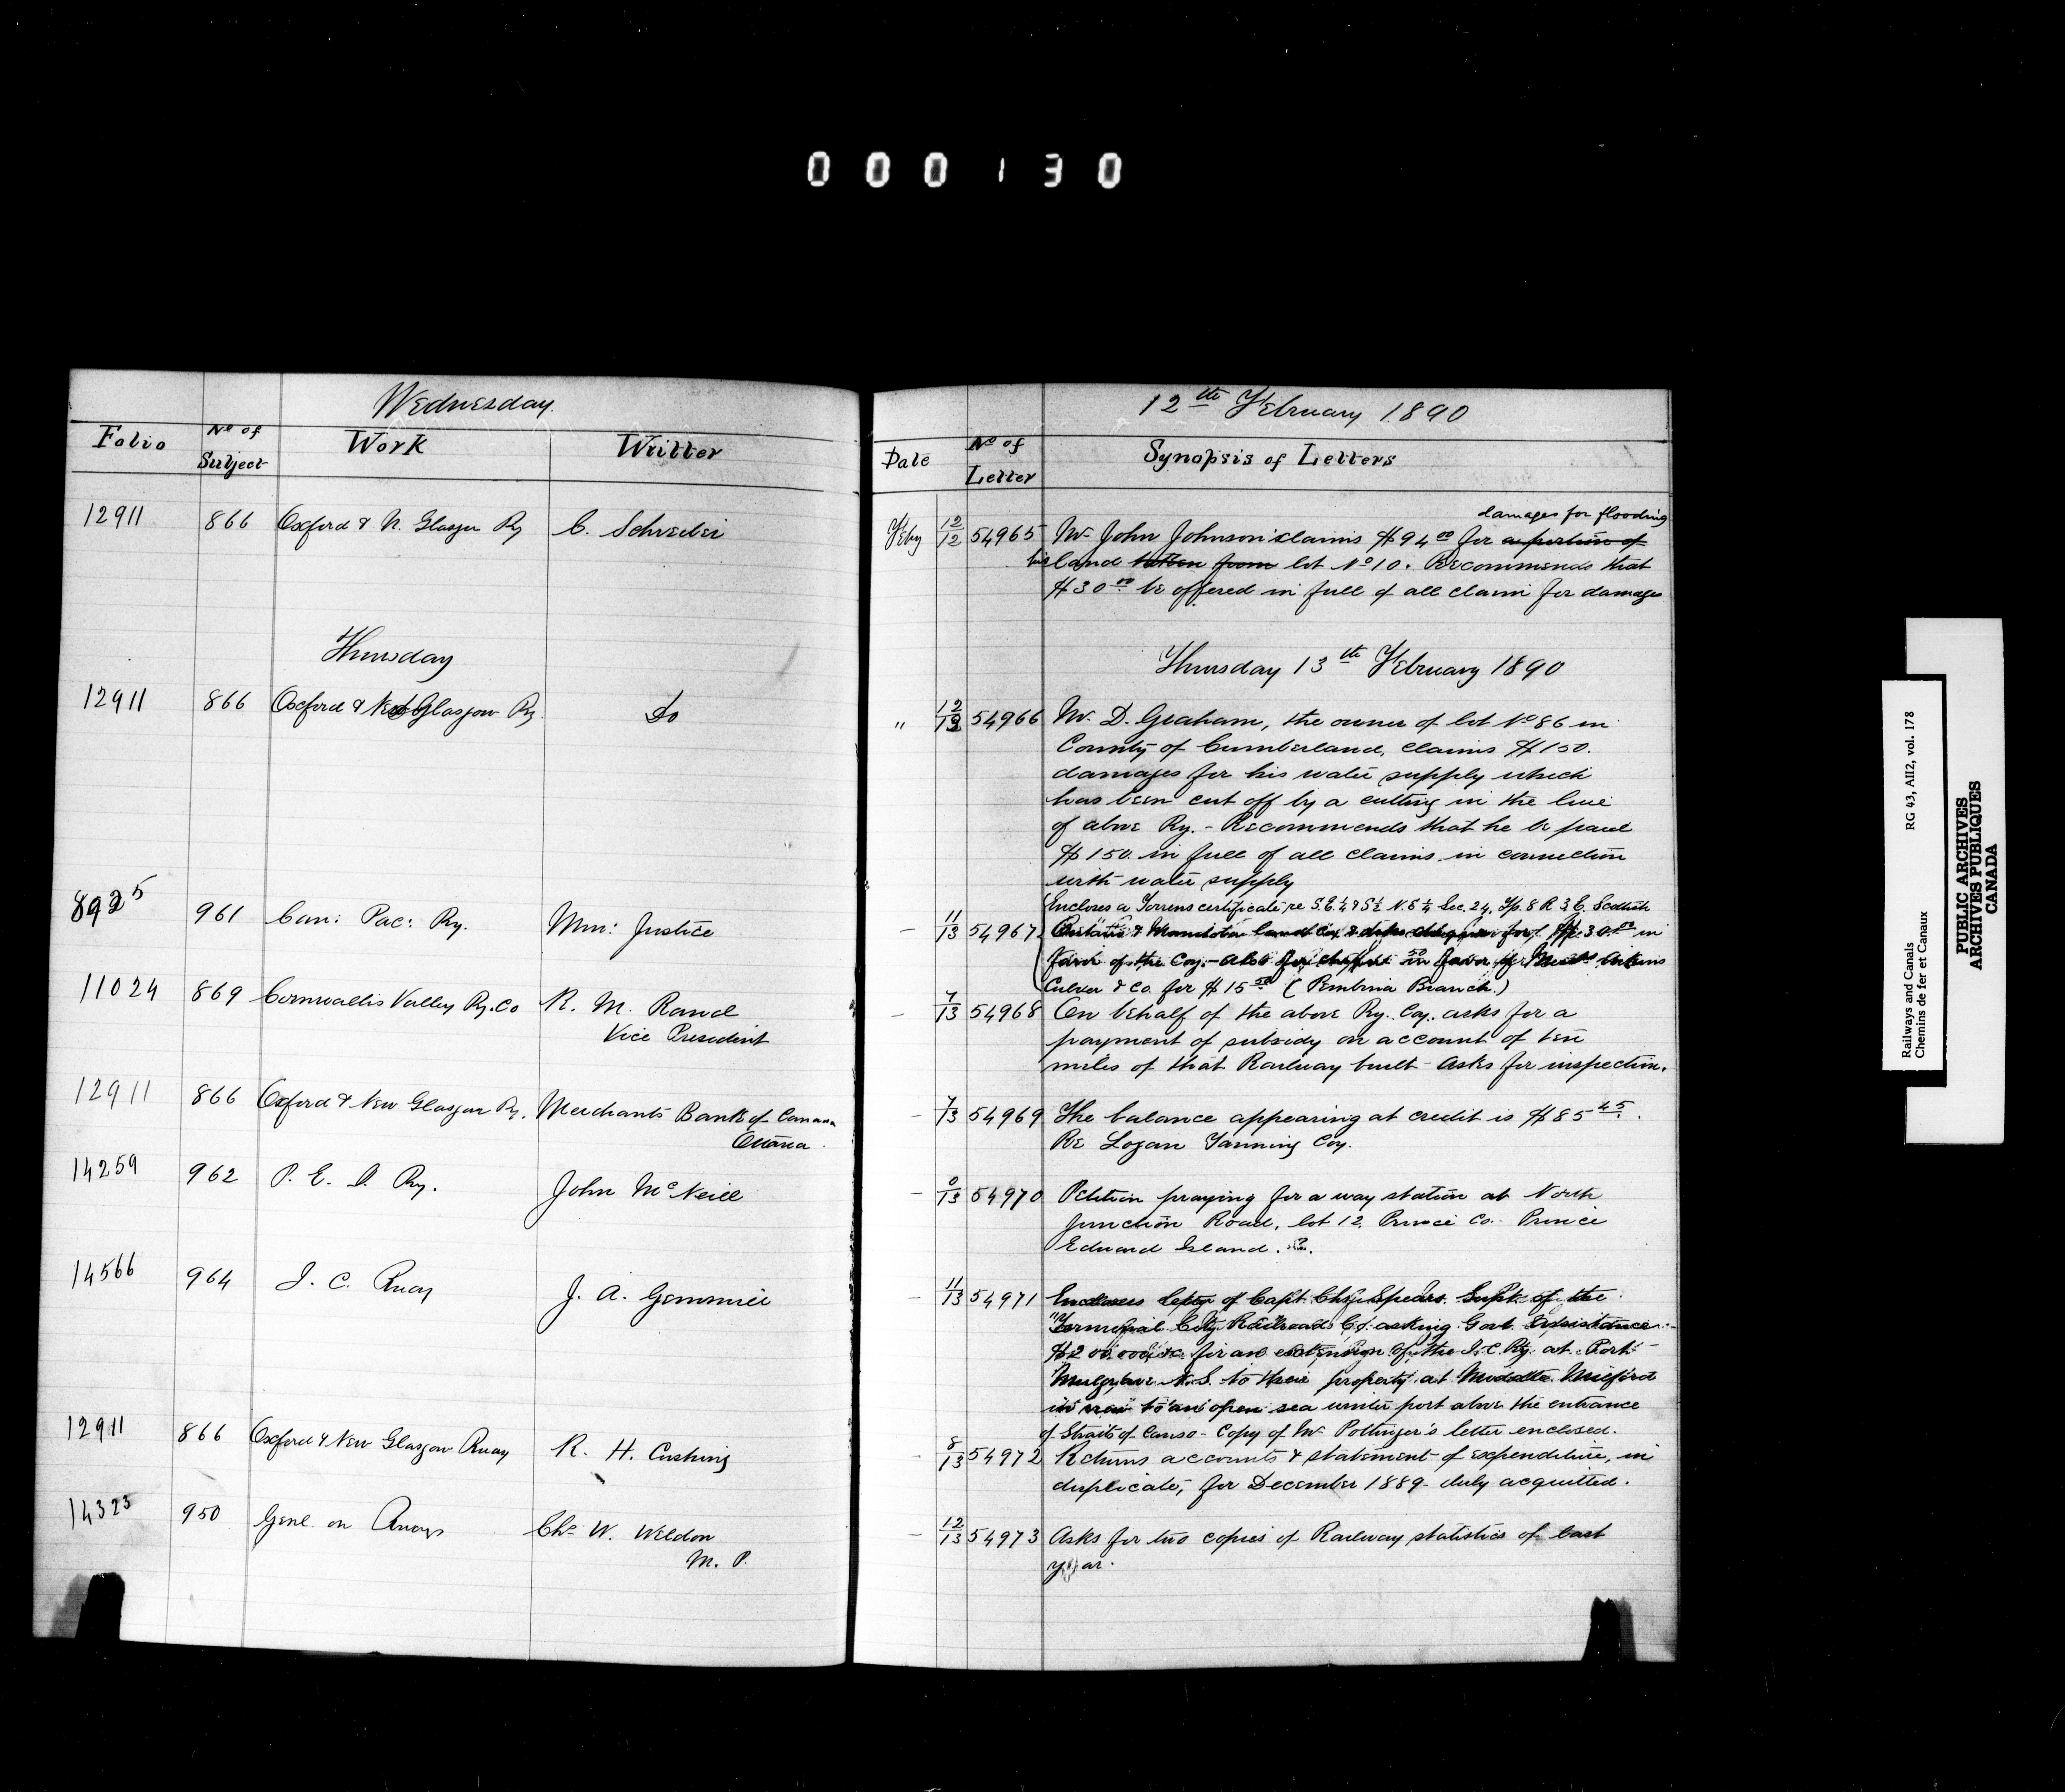 000130
Wednesday.
Folio
No of Subject
Work
Writter
12911 866 Oxford & N. Glasgow Ry C. Schreiber
Thursday
12911 866 Oxford & New Glasgow Ry. Do
8925 961 Can: Pac: Ry. Min: Justice
11024 869 Cornwallis Valley Ry. Co R. M. Rand
Vice President
12911 866 Oxford & New Glasgow Ry. Merchants Bank of Canada
Ottawa
14259 962 P. E. I. Ry. John McNeill
14566 964 I. C. Rway J. A. Gemmill
12911 866 Oxford & New Glasgow Rway R. H. Cushing
14323 950 Genl. on Rways Chs W. Weldon
M. P.
12th February 1890
Date
No of Letter
Synopsis of Letters
damages for flooding
Feby 12/12 54965 Mr John Johnson claims $94 00 for a portion of
his land taken from lot No 10. Recommends that
$30 00 be offered in full of all claim for damages
Thursday 13th February 1890
" 12/13 54966 Mr. D. Graham, the owner of lot No 86 in
County of Cumberland, claims $150.
damages for his water supply which
has been cut off by a cutting in the line
of above Ry. - Recommends that he be paid
$150. in full of all claims in connection
with water supply
Encloses a Torrens certificate re S.E. ¼ & S ½ N.E ¼ Sec. 24, Tp. 8 R 3 E. Scottish
- 11/13 54967 Ontario & Manitoba land Co. & asks cheque for $30.00 in
favor of the Coy. - Also for cheque in favor of Messrs
Culver & Co. for $15 50 (Pembina Branch.)
- 7/13 54968 On behalf of the above Ry. Coy. asks for a
payment of subsidy on account of ten
miles of that Railway built - Asks for inspection.
- 7/13 54969 The balance appearing at credit is $85 45.
Re Logan Tanning Coy.
- 0/13 54970 Petition praying for a way station at North
Junction Road, lot 12, Prince Co. Prince
Edward Island.
- 11/13 54971 Encloses letter of Capt. Chs. Spears Supt. of the
"Terminal City Railroad Co. asking Govt. assistance
for an extension of the I. C. Ry. at Port
Mulgrave N.S. to their property at Milford
open sea winter port above the entrance
of Straits of Canso - Copy of Mr Pottinger's letter enclosed.
- 8/13 54972 Returns accounts & statement of expenditure, in
duplicate, for December 1889 - duly acquitted.
- 12/13 54973 Asks for two copies of Railway statistics of last
year.
Railways and Canals RG 43, AII2, vol. 178
Chemins de fer et Canaux
PUBLIC ARCHIVES
ARCHIVES PUBLIQUES
CANADA